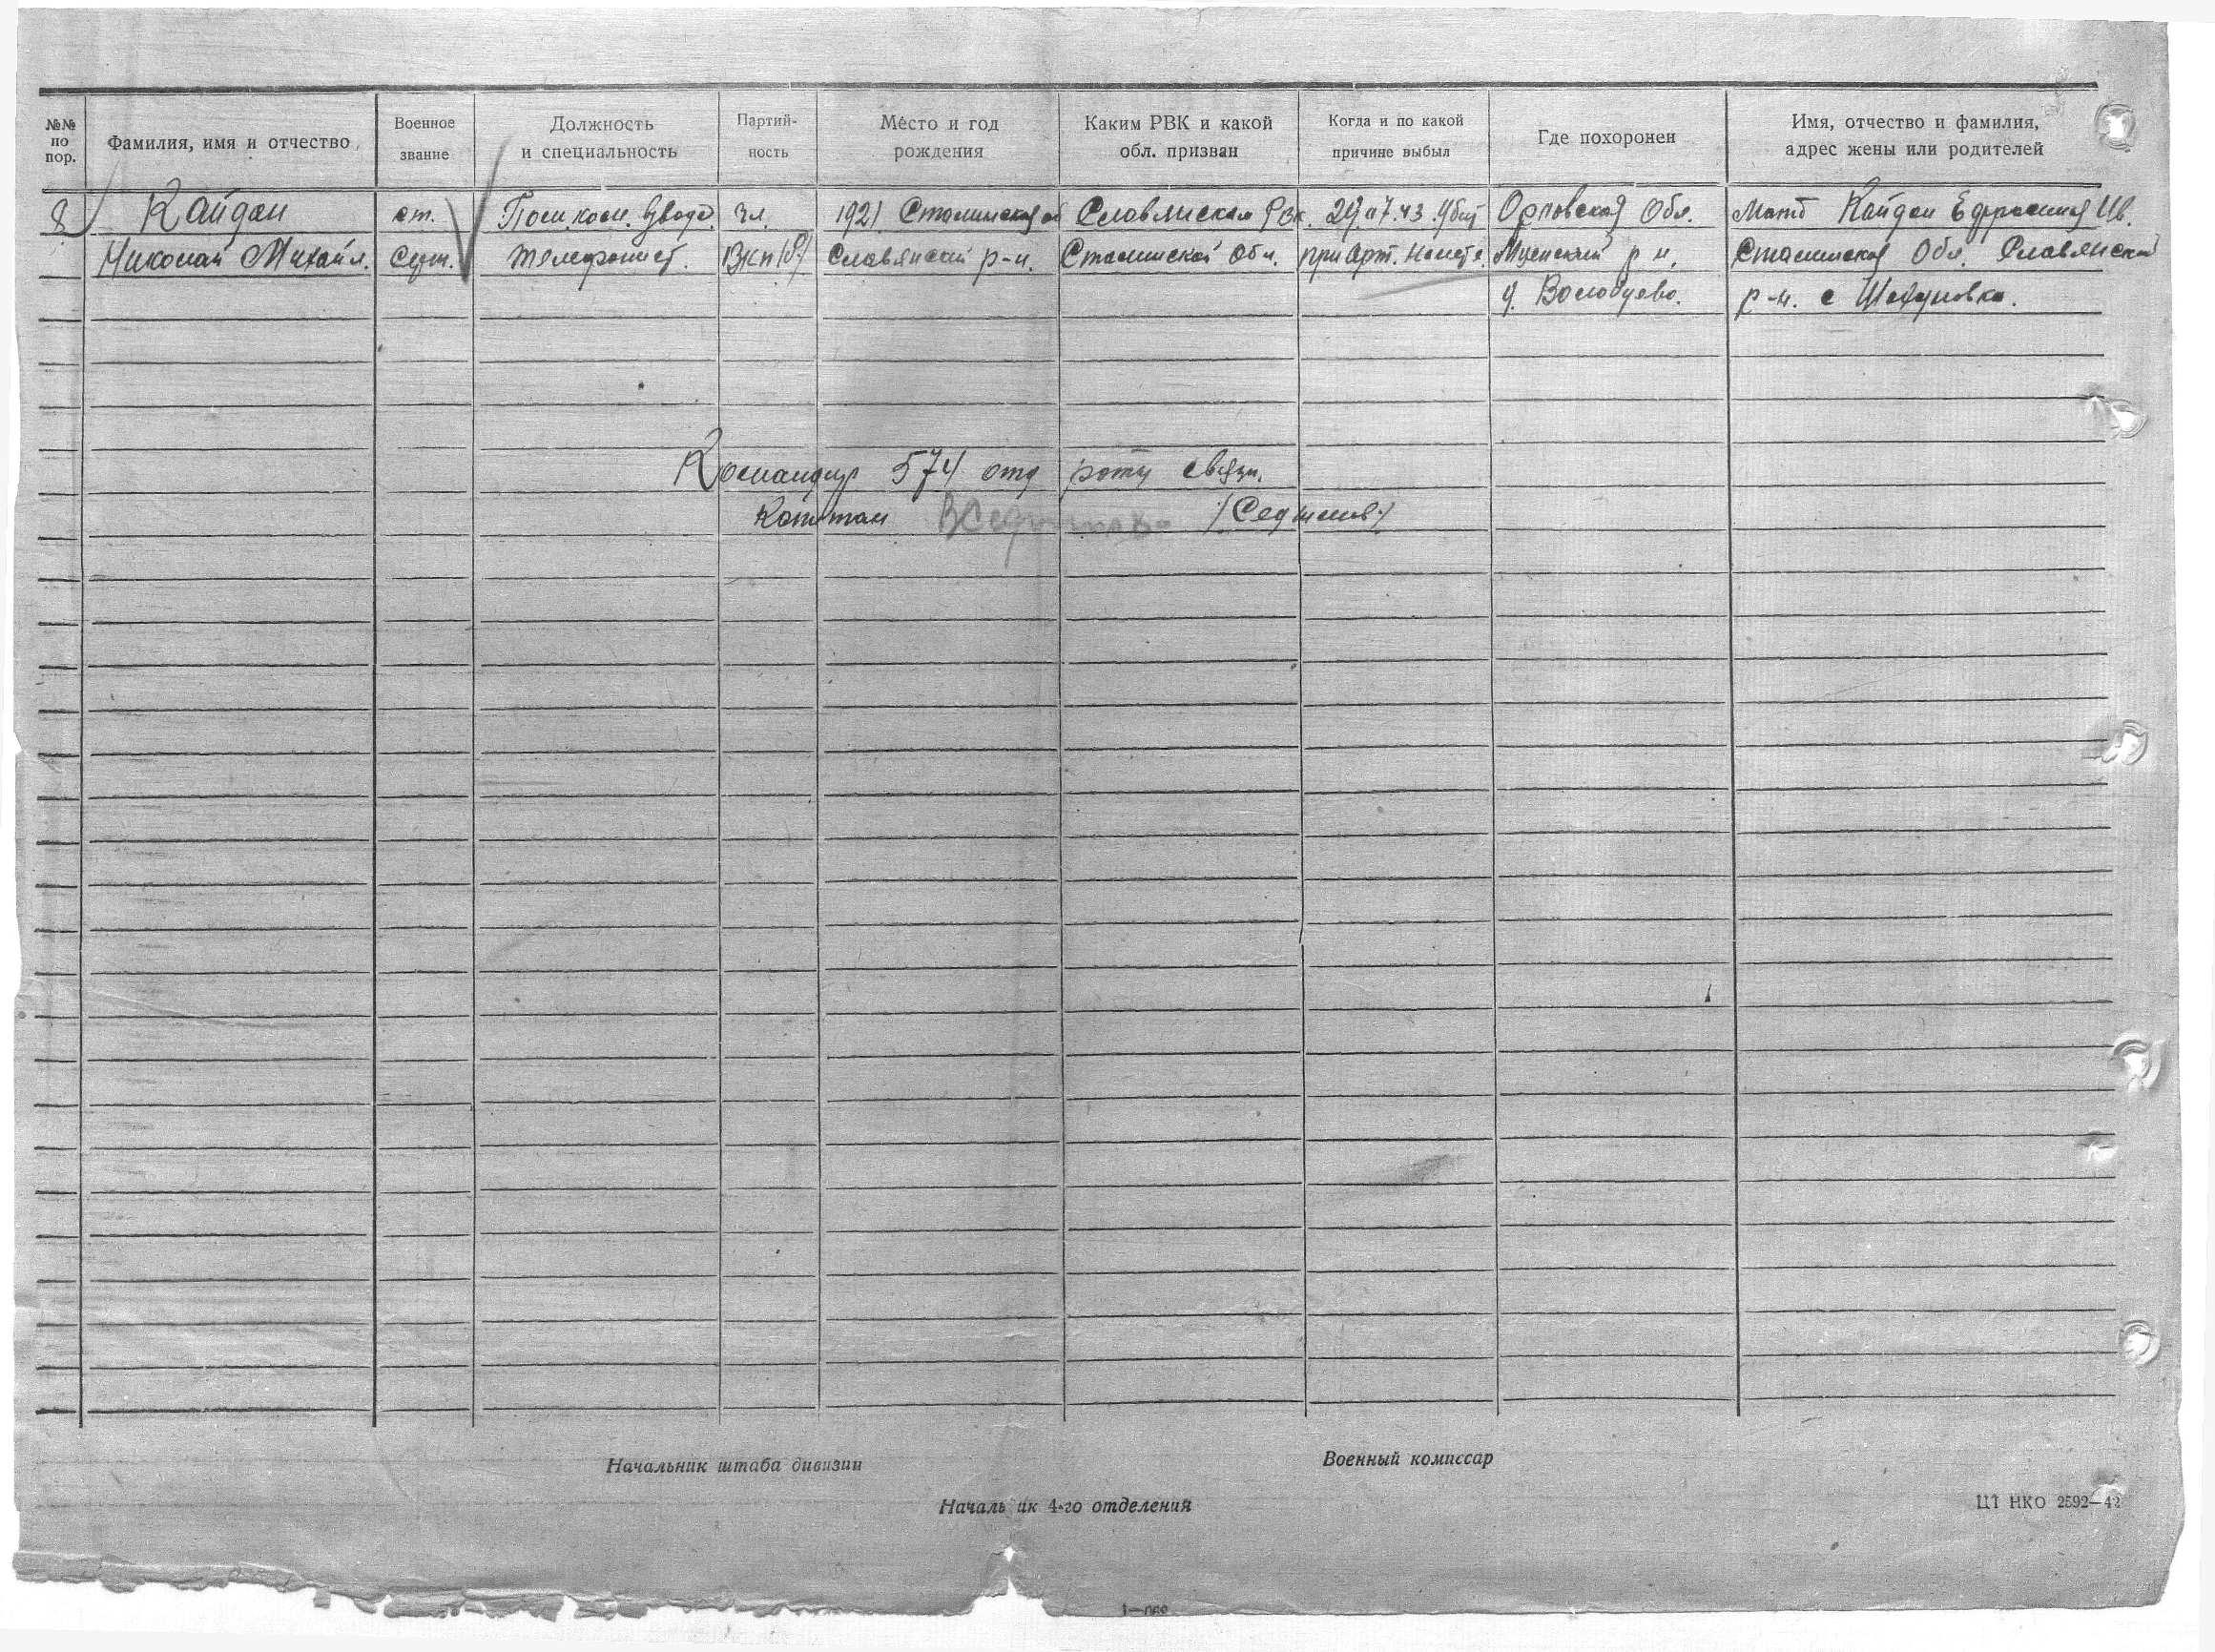 №№ по пор.
Фамилия, имя и отчество
Военное звание
Должность и специальность
Партий-ность
Место и год рождения
Каким РВК и какой обл. призван
Когда и по какой причине выбыл
Где похоронен
Имя, отчество и фамилия, адрес жены или родителей
8 Кайдан ст. Пом. ком. взвода чл. 1921 Сталинская об Славянский Рвк. 29.07.43. Убит Орловская Обл. Мать Кайдан Ефросиния Ив.
Николай Михайл. Серж. телефонист. ВКП(б) Славянский р-н. Сталинской Обл. при Арт. Мценский р н, Сталинская Обл. Славянский
д. Волобуево. р-н. с Шидловка.
Командир 574 отд роты связи.
Капитан
Начальник штаба дивизии
Военный комиссар
Началь ик 4-го отделения
ЦТ НКО 2592—42